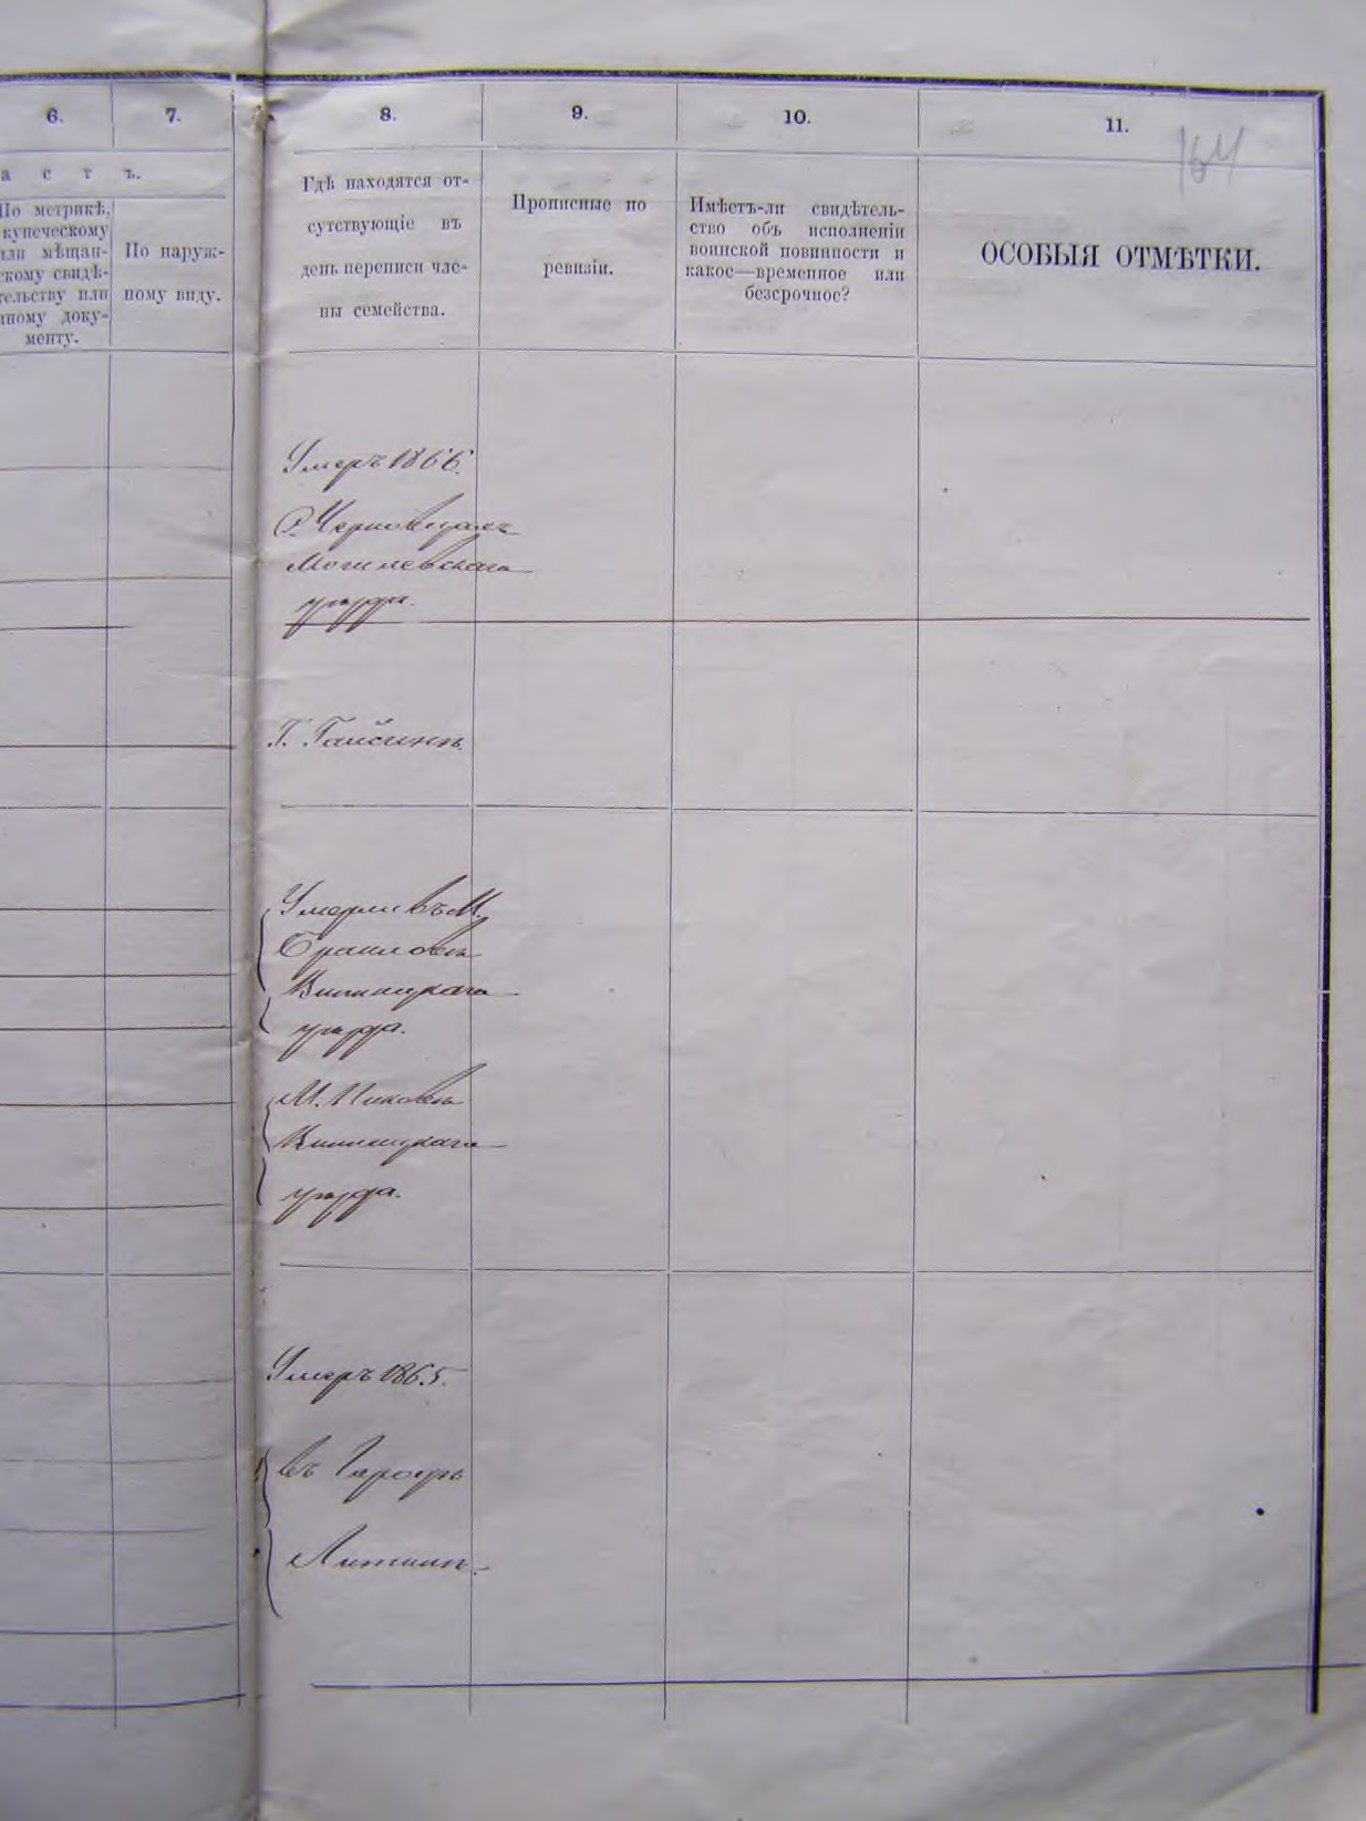 6.
7.
8.
9.
10.
11.
164
а с т ъ.
По метрикѣ,
купеческому
или мѣщан-
скому свидѣ-
тельству или
иному доку-
менту.
По наруж-
ному виду.
Гдѣ находятся от-
сутствующіе въ
день переписи чле-
ны семейства.
Прописные по
ревизіи.
Имѣетъ-ли свидѣтель-
ство объ исполненіи
воинской повинности и
какое—временное или
безсрочное?
ОСОБЫЯ ОТМѢТКИ.
Умеръ 1866.
Черновцахъ
Могилевскаго
уѣзда.
Г. Гайсинѣ.
Умерли въ М.
Браиловѣ
Винницкаго
уѣзда.
М. Пиковѣ
Винницкаго
уѣзда.
Умеръ 1865.
въ Городѣ
Литинѣ.